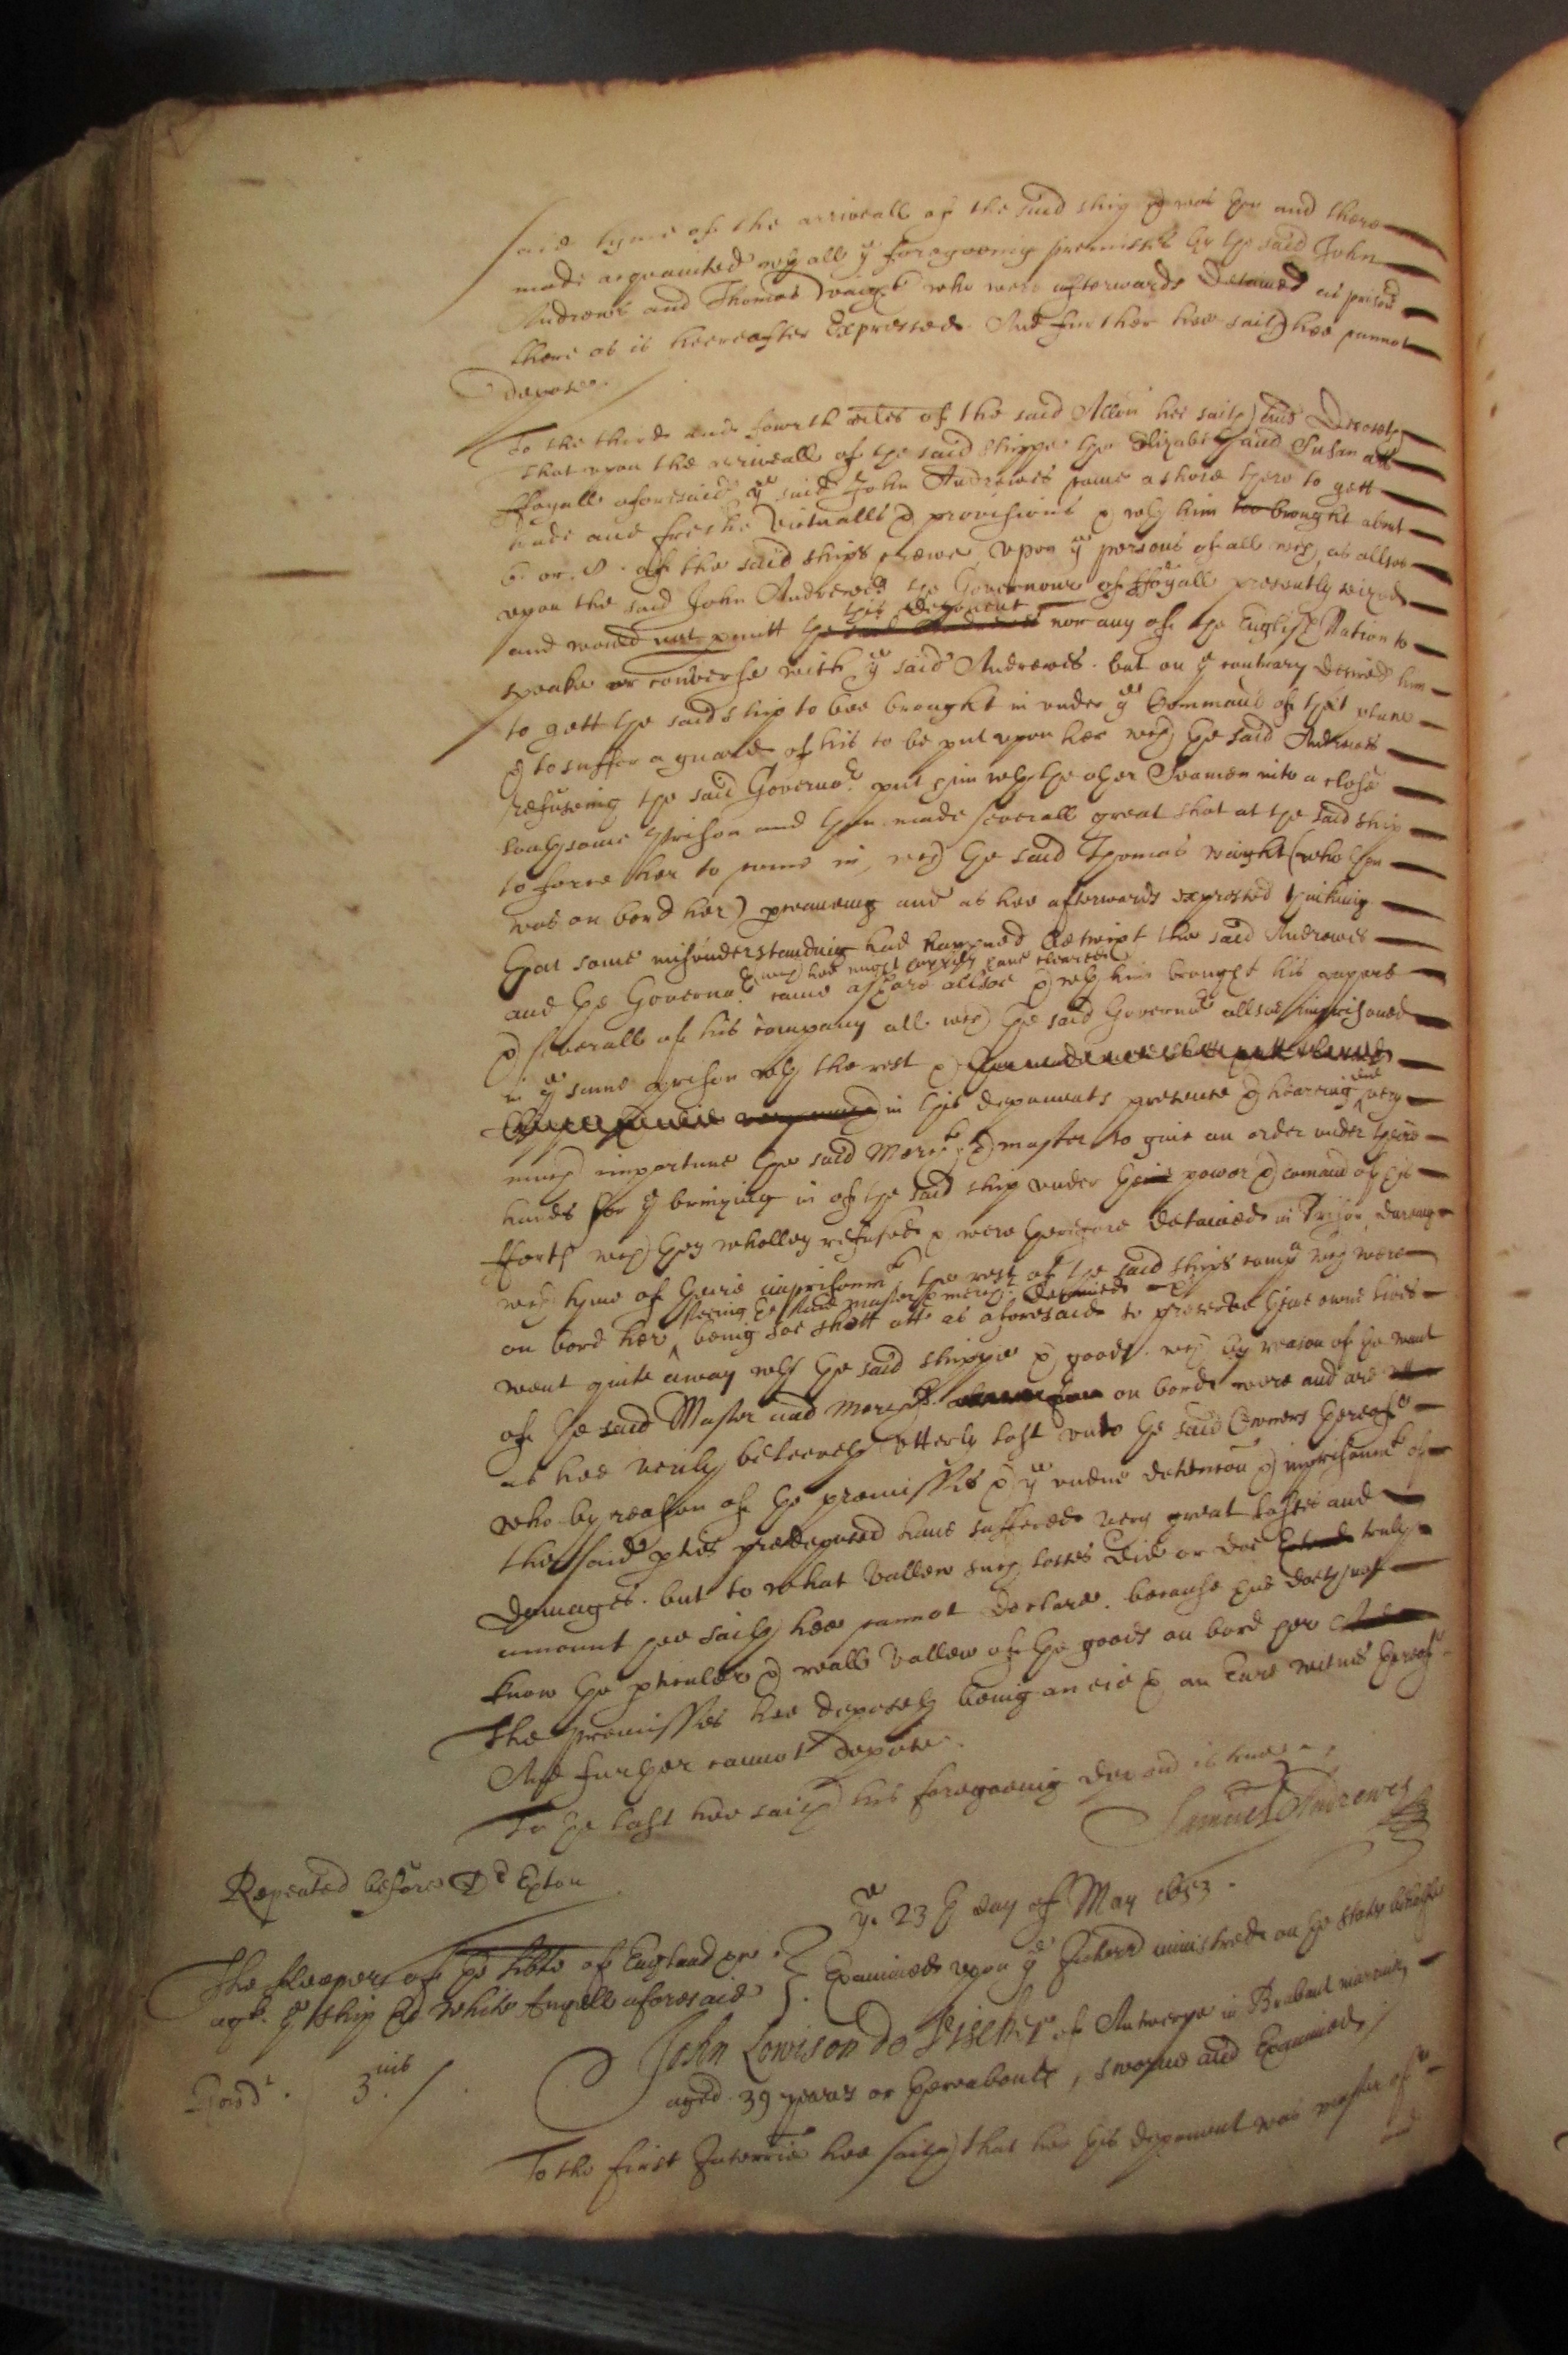 said tyme of the arriveall of the said ship & was then and there
made acquainted wth all ye foregoeing premisses by the said John
Andrewes and Thomas Waight who were afterwards detained as prisonrs
there as is heereafter expressed. And further hee saith hee cannot
depose.
To the third and fourth arles of the said Allon hee saith and deposeth
that upon the arriveall of the said shippe the Elizabeth and Susan att
ffayall aforesaid ye said John Andrewes came ashore there to gett
and freshe victualls & provisions & wth him brought about
6. or. 8. of the said ships crewe, upon ye persons of all wch, as allsoe
upon the said John Andrewes the Governour of ffayall presently seized
this deponent
and would not pmitt the said Andrewes nor any of the English Nation to
speake or converse with ye said Andrewes. but on ye contrary desired him
to gett the said ship to bee brought in under ye Command of that place
& to suffer a guard of his to be put upon her wch the said Andrewes
refuseing the said Governor. put him wth the other Seamen into a close
loathsome prison and then made severall great shot at the said ship
to force her to come in, wch the said Thomas Waight (who then
was on bord her) perceaveing and as hee afterwards expressed thinking
that some misunderstanding had happned betwixt the said Andrewes
wch hee might happily have cleared
and the Governor. came ashore allsoe & wth him brought his papers
& severall of his company all wch the said Governor allsoe imprisoned
in ye same prison wth the rest &
in this deponents presence & heareing did very
much importune the said Mercht & master to give an order under theire
hands for ye bringing in of the said ship under the power & comand of his
fforts wch they wholley refused & were therefore detained in Prison, dureing
wch tyme of theire imprisonmt, the rest of the said ships compa wch were
seeing the said master & mercht detained &
on bord her, being soe shott att as aforesaid to preserve their owne lives
went quite away wth the said shippe & goods. wch by reason of ye want
of the said Master and Mercht on bord were and are
as hee verily beleeveth utterly lost unto the said Owners thereof
who by reason of the premisses & ye undue detention & imprisonmt of
the said pties predeposed have suffered very great losses and
damages. but to what vallew such losses did or doe truly
amount hee saith hee cannot declare. because hee doeth not
know the pticuler & reall vallew of the goods on bord her
The premisses hee deposeth being an eie & an Eare witnes thereof
And further cannot depose.
To the last hee saith his foregoeing depo is true
Samuel Andrewes
Repeated before Dr Exton
ye. 23th day of May 1653.
The Keepers of the libtie of England
agt. ye ship the White Angell aforesaid
Examined upon ye Interrs ministred on the states behalfe
3ius
John Lowison de Vischer of Antwerpe in Brabant mariner,
aged 39 yeares or thereabouts, sworne and Examined
To the first Interrie hee saith that hee this deponent was master of